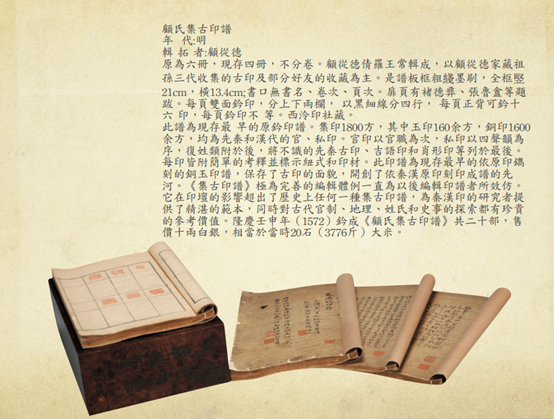 顧氏集古印譜
年　代:明
輯 拓 者:顧從德
原為六冊，現存四冊，不分卷。顧從德倩羅王常輯成，以顧從德家藏祖
孫三代收集的古印及部分好友的收藏為主。是譜板框粗綫墨刷，全框堅
21cm，橫13.4cm;書口無書名、卷次、頁次。扉頁有褚德彝、張魯盦等題
跋。每頁雙面鈐印，分上下兩欄， 以黑細線分四行， 每頁正背可鈐十
六 印，每頁鈐印不 等。西泠印社藏。
此譜為現存最 早的原鈐印譜。集印1800方，其中玉印160余方，銅印1600
余方，均為先秦和漢代的官、私印。官印以官職為次，私印以四聲韻為
序，復姓類附於後，將不識的先秦古印、吉語印和肖形印等列於最後。
每印皆附簡單的考釋並標示紐式和印材。此印譜為現存最早的依原印鐫
刻的銅玉印譜，保存了古印的面貌，開創了依秦漢原印刻印成譜的先
河。《集古印譜》極為完善的編輯體例一直為以後編輯印譜者所效仿。
它在印壇的影響超出了歷史上任何一種集古印譜，為秦漢印的研究者提
供了精湛的範本，同時對古代官制、地理、姓氏和史事的探索都有珍貴
的參考價值。隆慶壬申年（1572）鈐成《顧氏集古印譜》共二十部，售
價十兩白銀，相當於當時20石（3776斤）大米。